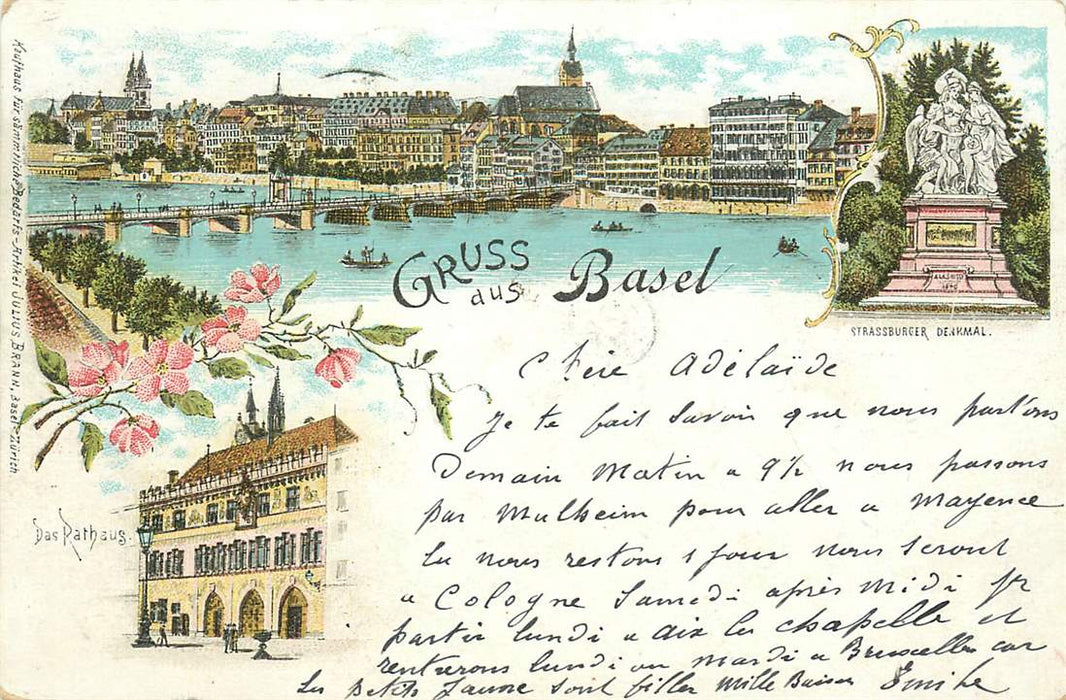 Kaufhaus für sämmtliche Bedarfs-Artikel JULIUS BRANN, Basel-Zürich
GRUSS
aus Basel
STRASSBURGER DENKMAL.
Das Rathaus.
Chère Adélaïde
Je te fait savoir que nous partons
Demain Matin a 9½ nous passons
par Mulheim pour aller a Mayence
la nous restons 1 jour nous seront
a Cologne Samedi après Midi pr
partir lundi a Aix la chapelle et
rentrerons lundi ou mardi a Bruxelles car
les petits Jaune sont filler Mille Baiser Emile